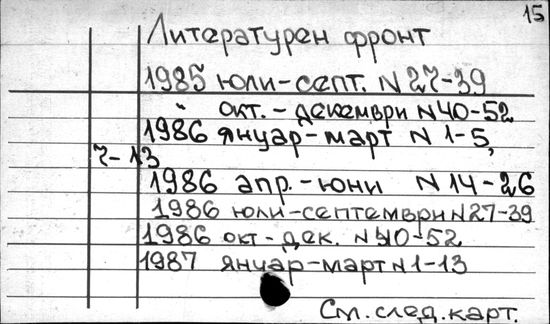 15
Литературен фронт
1985 юли-септ. N 27-39
" окт.-декември N 40-52
1986 януар-март N 1-5,
7-13
1986 апр.-юни N 14-26
1986 юли-септември N 27-39
1986 окт-дек. N 40-52
1987 януар-март N 1-13
См. след. карт.